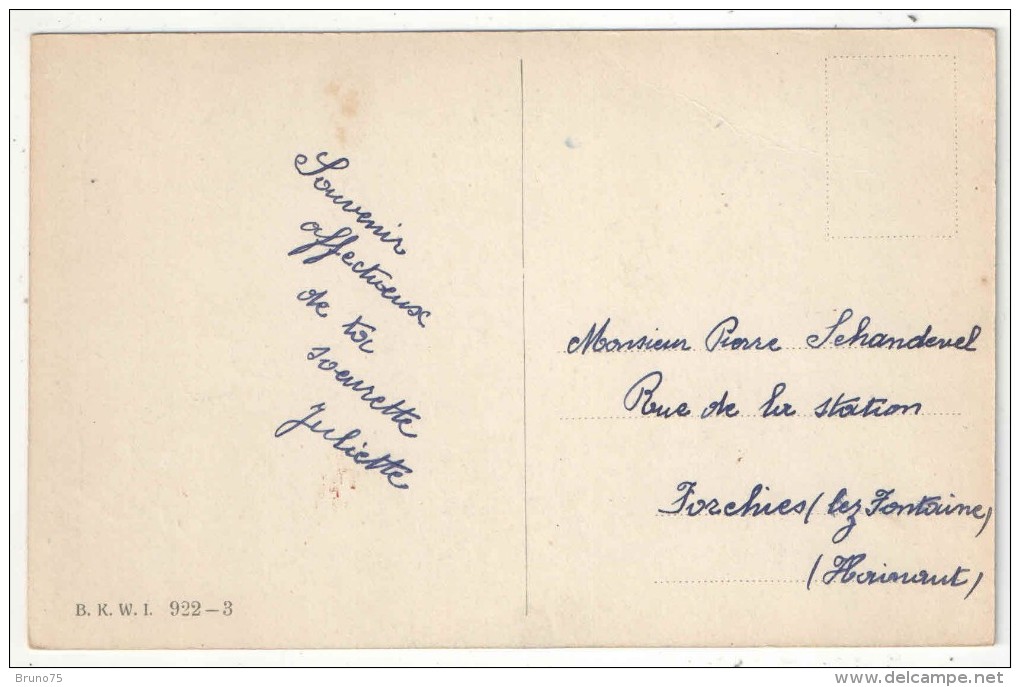 Souvenir
affectueux
de ta
soeurette
Juliette
Monsieur Pierre Schandevel
Rue de la station
Forchies (lez Fontaine)
(Hainaut)
B. K. W. I. 922-3
Bruno75
www.delcampe.net